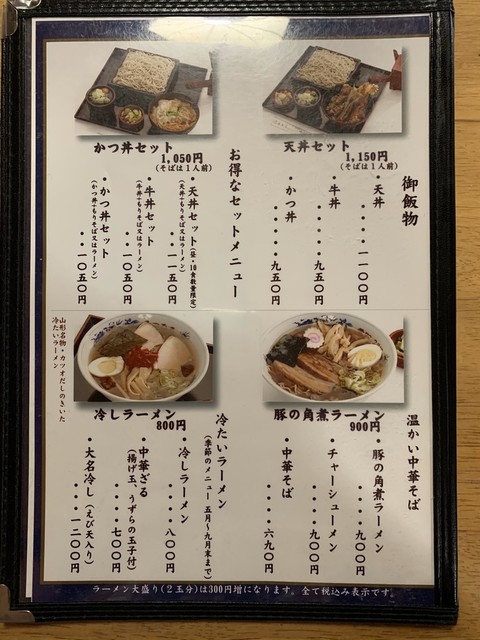 天丼セット
1,150円
(そばは1人前)
かつ丼セット
1,050円
(そばは1人前)
御飯物
・天丼・・・・・一一〇〇円
・牛丼・・・・・九五〇円
・かつ丼・・・・・九五〇円
お得なセットメニュー
・天丼セット(昼・10食数量限定)
(天丼+もりそば又はラーメン)
・・一一五〇円
・牛丼セット
(牛丼+もりそば又はラーメン)
・・一〇五〇円
・かつ丼セット
(かつ丼+もりそば又はラーメン)
・・一〇五〇円
豚の角煮ラーメン
900円
冷しラーメン
800円
温かい中華そば
・豚の角煮ラーメン
・・・・九〇〇円
・チャーシューメン
・・・・九〇〇円
・中華そば
・・・・六九〇円
冷たいラーメン
(季節のメニュー 五月〜九月末まで)
・冷しラーメン
・・・・八〇〇円
・中華ざる
(揚げ玉、うずらの玉子付)
・・・・七〇〇円
・大名冷し(えび天入り)
・・・・一二〇〇円
山形名物・カツオだしのきいた
冷たいラーメン
ラーメン大盛り(2玉分)は300円増になります。全て税込み表示です。